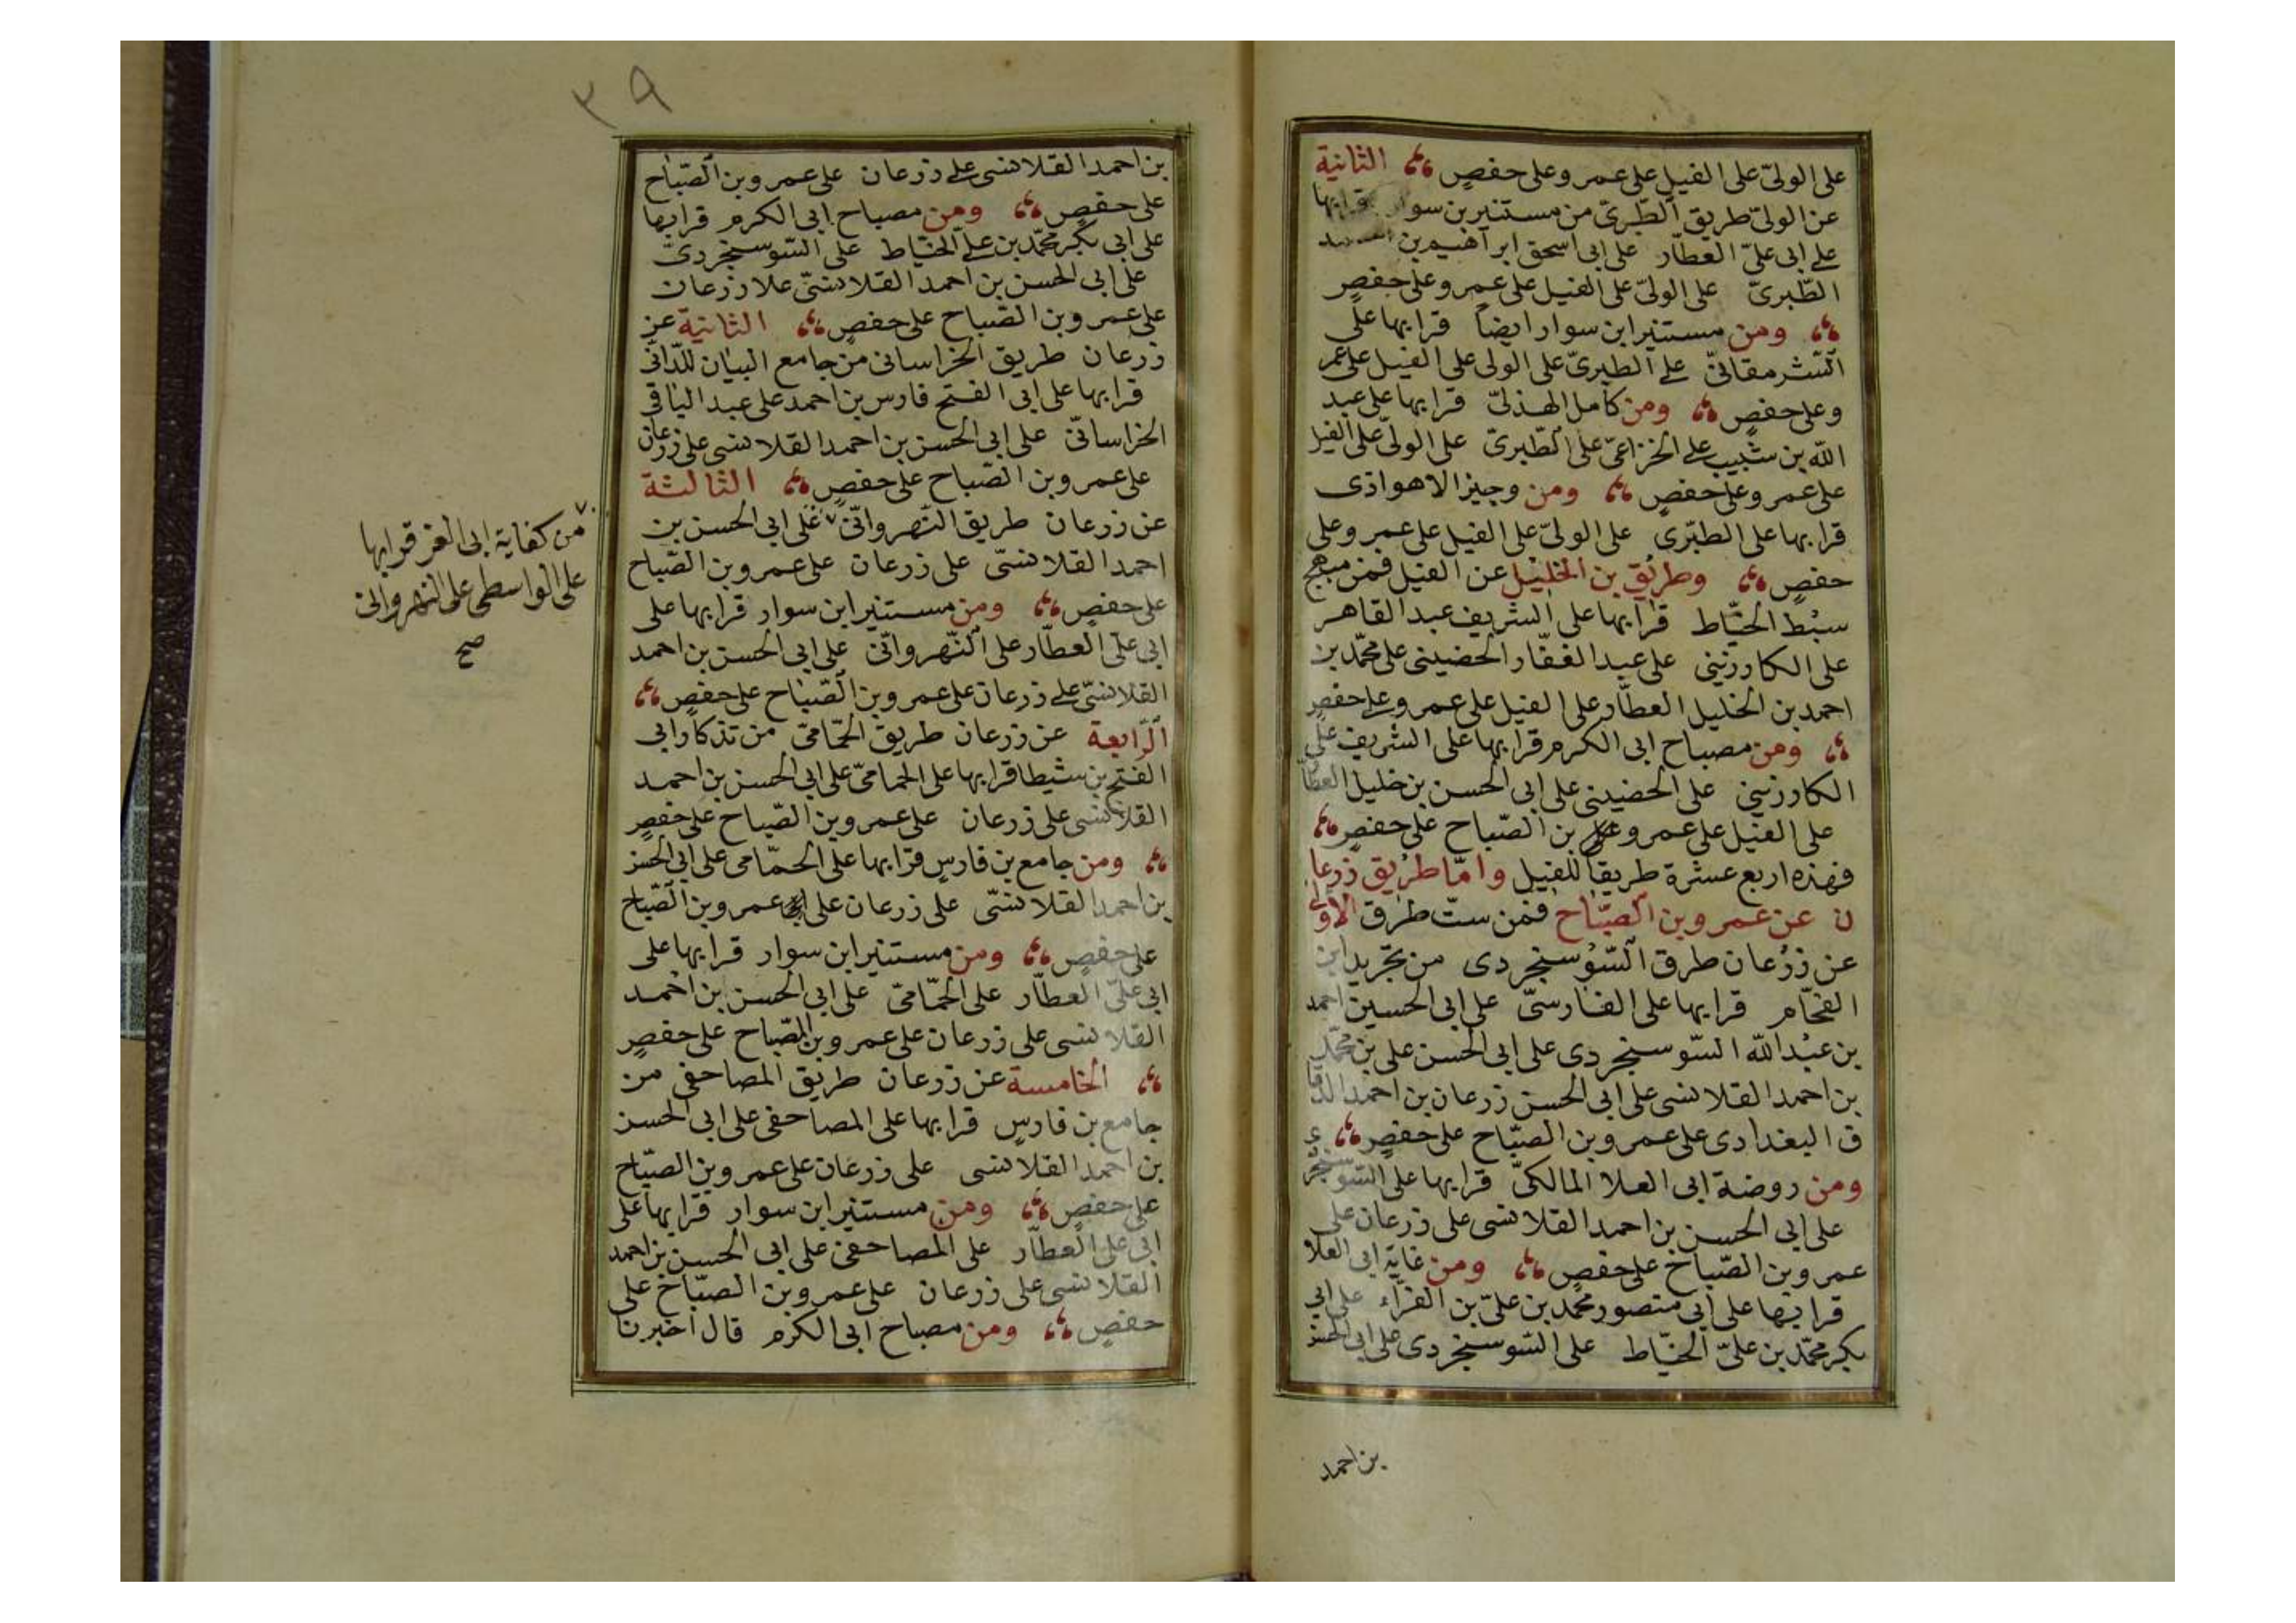 على الولىّ على الفيل على عمر وعلى حفصٍ الثانية
عن الولىّ طريق الطّبرىّ من مستنير بن سوار قرا بها
على ابى علىّ العطّار على ابى اسحق ابراهيم بن احمد
الطّبرىّ على الولىّ على الفيل على عمر وعلى حفصٍ
ومن مستنير ابن سوار ايضاً قرا بها على
الشرمقانىّ على الطبرىّ على الولى على الفيل على عمر
وعلى حفصٍ ومن كامل الهذلىّ قرا بها على عبد
الله بن شبيب على الخزاعىّ على الطّبرىّ على الولىّ على الفيل
على عمر وعلى حفصٍ ومن وجيز الاهوازى
قرا بها على الطبّرى على الولىّ على الفيل على عمر وعلى
حفصٍ وطريق بن الخليل عن الفيل فمن مبهج
سبط الخيّاط قرا بها على الشريف عبد القاهر
على الكارزينى على عبد الغفّار الحضينى على محمّد بن
احمد بن الخليل العطّار على الفيل على عمر وعلى حفصٍ
ومن مصباح ابى الكرم قرا بها على الشريف على
الكارزينى على الحضينى على ابى الحسن بن خليل العطّا
على الفيل على عمر و بن الصّباح على حفصٍ
فهذه اربع عشرة طريقاً للفيل وامّا طريق زرعا
ن عن عمر وبن الصّباح فمن ستّ طرق الاولى
عن زرعان طرق السّوسنجردى من تجريد ابن
الفحّام قرا بها على الفارسىّ على ابى الحسين احمد
بن عبد الله السّوسنجردى على ابى الحسن على بن محمّد
بن احمد القلانسى على ابى الحسن زرعان بن احمد الدّقا
ق البغدادى على عمر وبن الصّباح على حفصٍ
ومن روضة ابى العلا المالكىّ قرا بها على السّوسنجر
على ابى الحسن بن احمد القلانسى على زرعان على
عمر وبن الصّباح على حفصٍ ومن غاية ابى العلا
قرا بها على ابى منصور محمّد بن علىّ بن الفرّاء على ابى
بكر محمّد بن علىّ الخيّاط على السّوسنجردى على ابى الحسن
بن احمد
٣٩
بن احمد القلانسى على زرعان على عمر وبن الصّباح
على حفصٍ ومن مصباح ابى الكرم قرا بها
على ابى بكر محمّد بن على الخيّاط على السّوسنجردىّ
على ابى الحسن بن احمد القلانسىّ علا زرعان
على عمر وبن الصّباح على حفصٍ الثانية عن
زرعان طريق الخراسانى من جامع البيان للدّانىّ
قرا بها على ابى الفتح فارس بن احمد على عبد الباقى
الخراسانىّ على ابى الحسن بن احمد القلانسى على زرعان
على عمر وبن الصّباح على حفصٍ الثالثة
عن زرعان طريق النّهروانىّ على ابى الحسن بن
احمد القلانسىّ على زرعان على عمر وبن الصّباح
على حفصٍ ومن مستنير ابن سوار قرا بها على
ابى علىّ العطّار على النّهروانىّ على ابى الحسن بن احمد
القلانسىّ على زرعان على عمر وبن الصّباح على حفصٍ
الرّابعة عن زرعان طريق الحمّامىّ من تذكار ابى
الفتح بن شيطا قرا بها على الحمامىّ على ابى الحسن بن احمد
القلانسى على زرعان على عمر وبن الصّباح على حفصٍ
ومن جامع بن فارس قرا بها على الحمّامى على ابى الحسن
بن احمد القلانسىّ على زرعان على عمر وبن الصّباح
على حفصٍ ومن مستنير ابن سوار قرا بها على
ابى علىّ العطّار على الحمّامىّ على ابى الحسن بن احمد
القلانسى على زرعان على عمر وبن الصّباح على حفصٍ
الخامسة عن زرعان طريق المصاحفى من
جامع بن فارس قرا بها على المصاحفى على ابى الحسن
بن احمد القلانسى على زرعان على عمر وبن الصّباح
على حفصٍ ومن مستنير ابن سوار قرا بها على
ابى على العطّار على المصاحفى على ابى الحسن بن احمد
القلانسى على زرعان على عمر وبن الصّباح على
حفصٍ ومن مصباح ابى الكرم قال اخبرنا
من كفاية ابى العز قرا بها
على الواسطى على النهروانى
صح